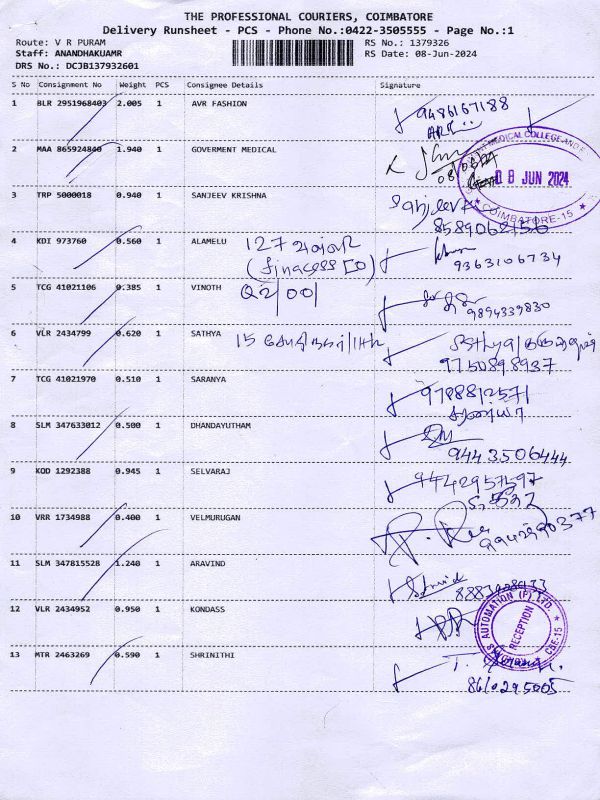 THE PROFESSIONAL COURIERS, COIMBATORE
Delivery Runsheet - PCS - Phone No.:0422-3505555 - Page No.:1
Route: V R PURAM
RS No.: 1379326
Staff: ANANDHAKUAMR
RS Date: 08-Jun-2024
DRS No.: DCJB137932601
S No Consignment No Weight PCS Consignee Details Signature
1 BLR 2951968403 2.005 1 AVR FASHION 9486167188
2 MAA 865924840 1.940 1 GOVERMENT MEDICAL
MEDICAL COLLEGE AND
08 JUN 2024
COIMBATORE-15
3 TRP 5000018 0.940 1 SANJEEV KRISHNA Sanjeev
4 KDI 973760 0.560 1 ALAMELU 127
9363106734
5 TCG 41021106 0.385 1 VINOTH
9894339830
6 VLR 2434799 0.620 1 SATHYA 15 Sathya
9750898937
7 TCG 41021970 0.510 1 SARANYA 9788812571
சரண்யா
8 SLM 347633012 0.500 1 DHANDAYUTHAM
9443506444
9 KOD 1292388 0.945 1 SELVARAJ 9442957597
10 VRR 1734988 0.400 1 VELMURUGAN
11 SLM 347815528 1.240 1 ARAVIND
12 VLR 2434952 0.950 1 KONDASS
AUTOMATION (P) LTD.
RECEPTION
CBE-15
13 MTR 2463269 0.590 1 SHRINITHI
8610295005